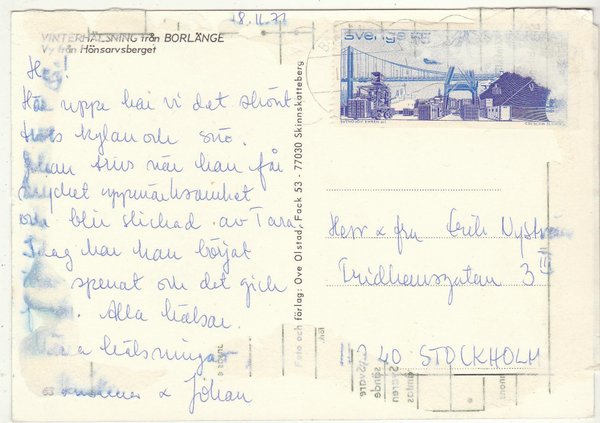 8.11.77
VINTERHÄLSNING från BORLÄNGE
Vy från Hönsarvsberget
Hej!
Här uppe har vi det skönt
trots kylan och snö.
Johan trivs när han får
mycket uppmärksamhet
och blir slickad av Tara
Idag har han börjat
äta spenat och det gick
Alla hälsar.
hälsningar
& Johan
63
Foto och förlag: Ove Olstad, Fack 53 - 77030 Skinnskatteberg
Sverige
Herr & fru Erik Nyström
Fridhemsgatan 3
40 STOCKHOLM